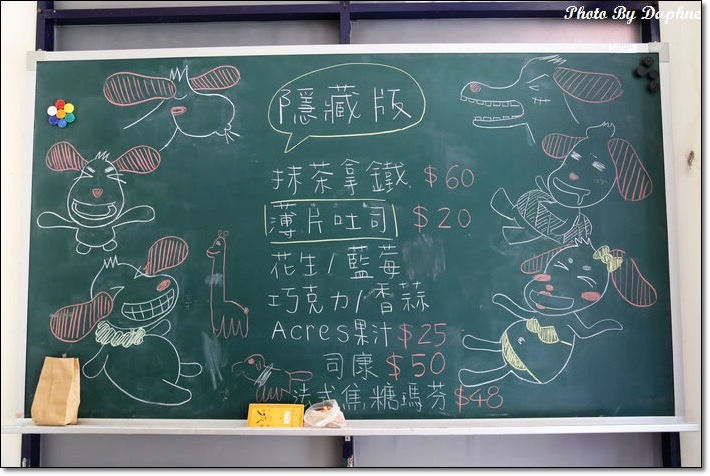 Photo By Daphne
隱藏版
抹茶拿鐵 $60
薄片吐司 $20
花生/藍莓
巧克力/香蒜
Acres果汁$25
司康 $50
法式焦糖瑪芬 $48